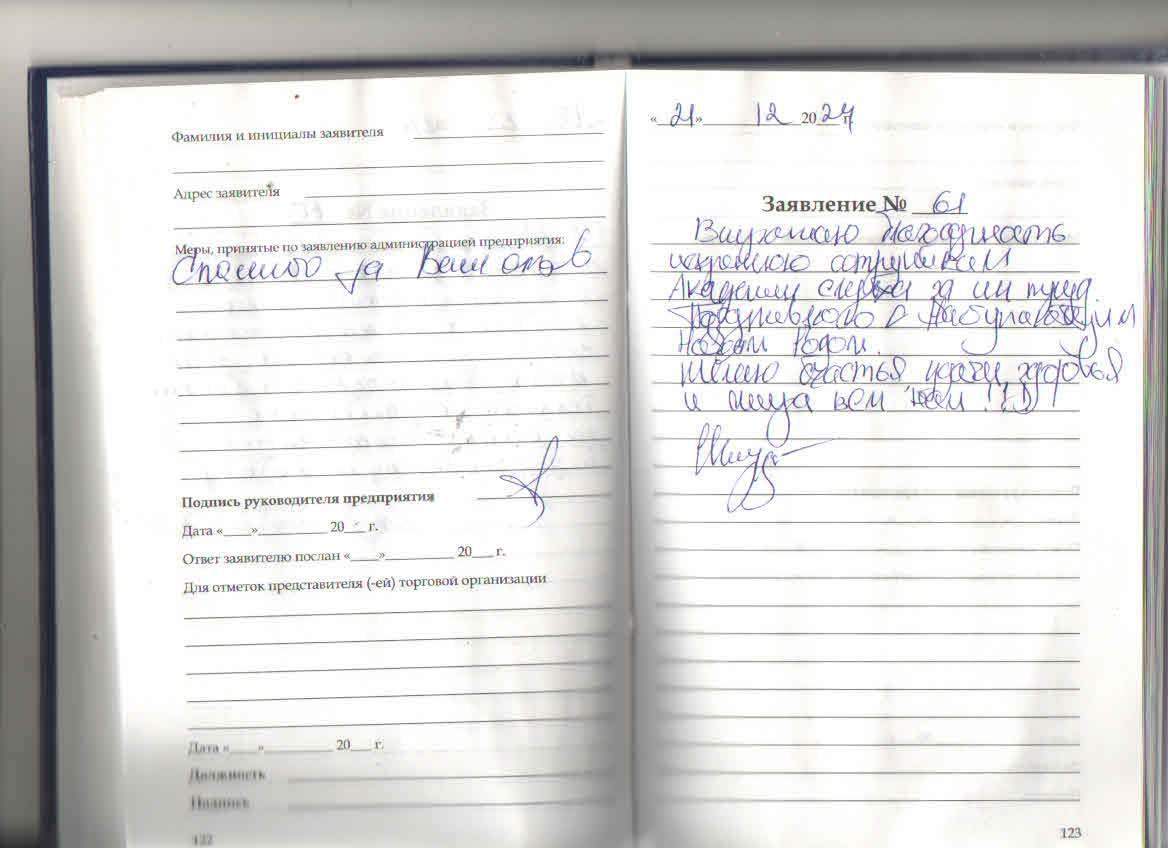 Фамилия и инициалы заявителя
Адрес заявителя
Меры, принятые по заявлению администрацией предприятия:
Спасибо за Ваш отзыв
Подпись руководителя предприятия
Дата «___»__________ 20___ г.
Ответ заявителю послан «___»__________ 20___ г.
Для отметок представителя (-ей) торговой организации
Дата «___»__________ 20___ г.
Должность
Подпись
122
«21» 12 2024 г.
Заявление № 61
Выражаю благодарность
искреннюю сотрудникам
Академии слуха за их труд.
Поздравляю с Наступающим
Новым Годом.
Желаю счастья, удачи, здоровья
и мира вам всем !!!)
123